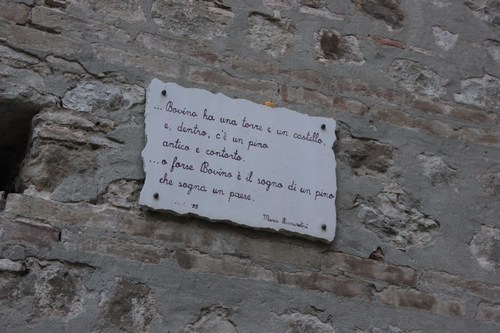 ... Bovino ha una torre e un castello,
e, dentro, c'è un pino
antico e contorto.
... o forse Bovino è il sogno di un pino
che sogna un paese.